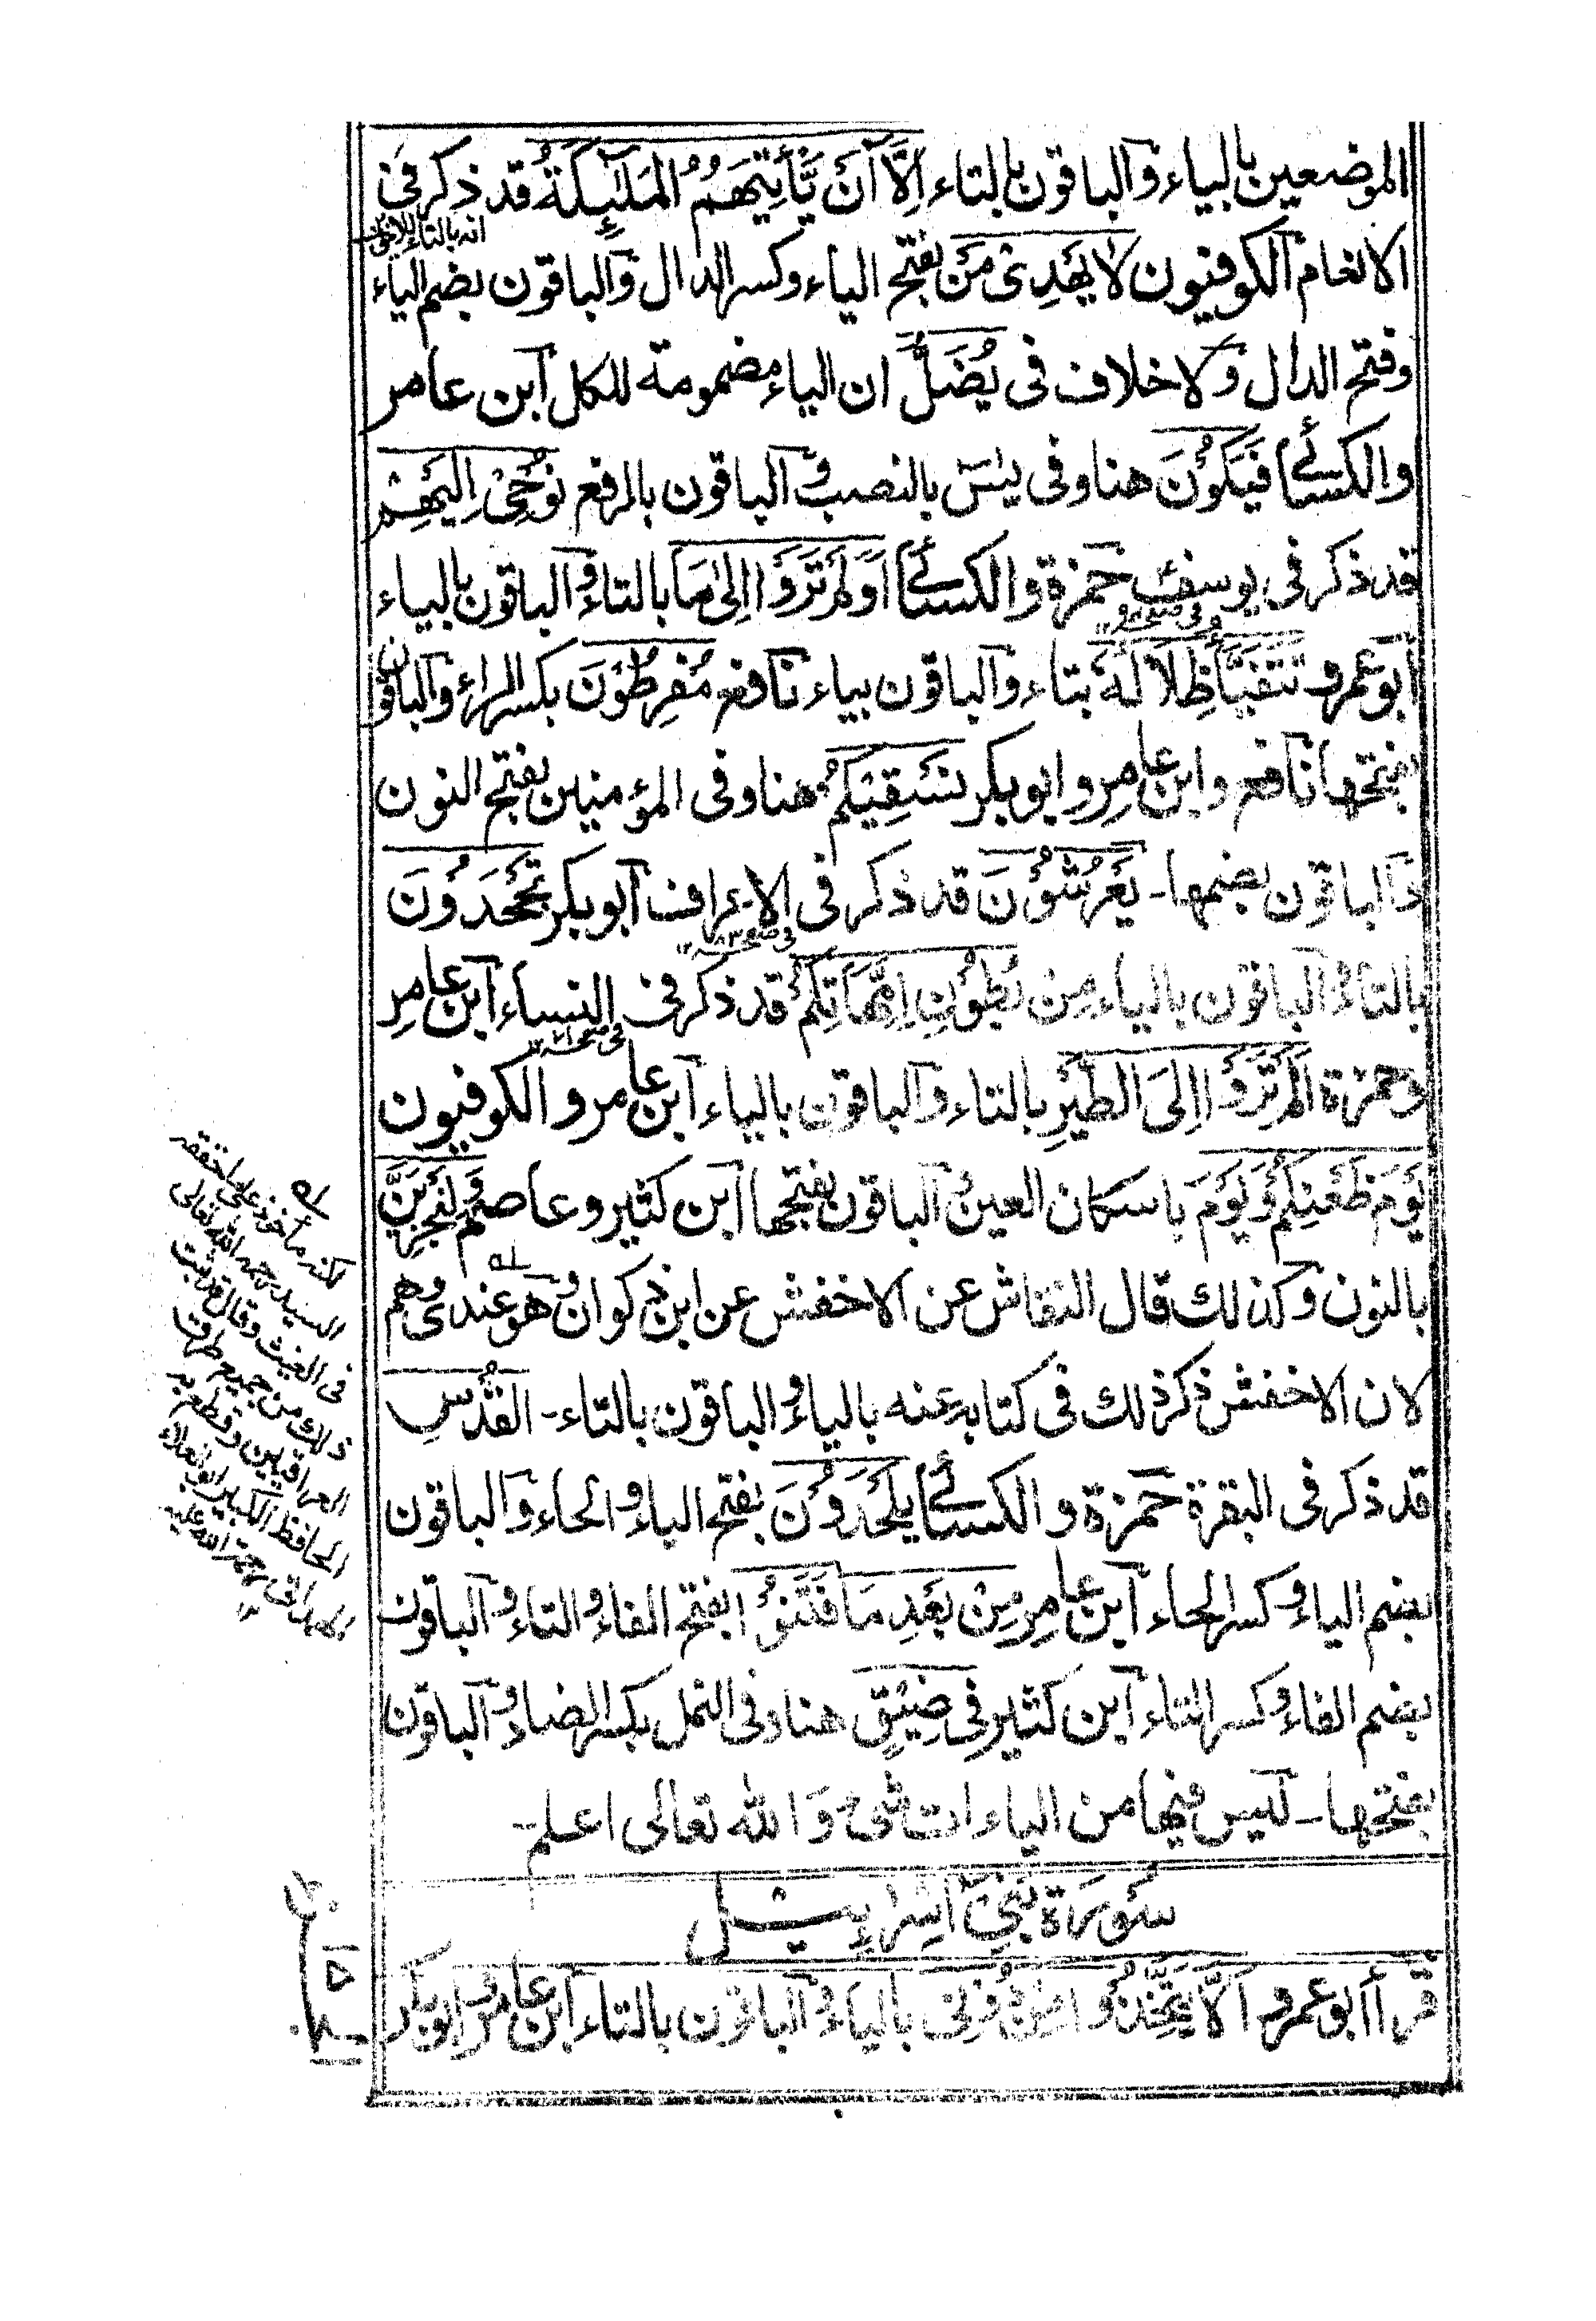 الموضعين بالياء والباقون بالتاء اِلَّآ اَنْ يَّأْتِيَهُمُ الْمَلٰٓئِكَةُ قد ذكر فى
انه بالتاء للاخوان
الانعام الكوفيون لَا يَهْدِىْ مَنْ بفتح الياء وكسر الدال والباقون بضم الياء
وفتح الدال ولا خلاف فى يُضِلُّ ان الياء مضمومة للكل ابن عامر
والكسائى فَيَكُوْنَ هنا وفى يٰسٓ بالنصب والباقون بالرفع نُوْحِىْ اِلَيْهِمْ
قد ذكر فى يوسف حمزة والكسائى اَوَلَمْ تَرَوْا اِلٰى مَا بالتاء والباقون بالياء
ابو عمرو تَتَفَيَّأُ ظِلَالُهٗ بتاء والباقون بياء نافع مُفْرِطُوْنَ بكسر الراء والباقون
بفتحها نافع وابن عامر وابو بكر نَسْقِيْكُمْ هنا وفى المؤمنين بفتح النون
والباقون بضمها۔ يَعْرُشُوْنَ قد ذكر فى الاعراف ابو بكر تَجْحَدُوْنَ
بالتاء والباقون بالياء مِنْ بُطُوْنِ اِمَّهَاتِكُمْ قد ذكر فى النساء ابن عامر
وحمزة اَلَمْ تَرَوْا اِلَى الطَّيْرِ بالتاء والباقون بالياء ابن عامر والكوفيون
يَوْمَ ظَعْنِكُمْ وَيَوْمَ باسكان العين والباقون بفتحها ابن كثير وعاصم وَلَنَجْزِيَنَّ
بالنون وكذلك قال النقاش عن الاخفش عن ابن ذكوان وهو عندى وهم
لان الاخفش ذكر ذلك فى كتابه عنه بالياء والباقون بالتاء۔ الْقُدُسِ
قد ذكر فى البقرة حمزة والكسائى يَلْحَدُوْنَ بفتح الياء والحاء والباقون
بضم الياء وكسر الحاء ابن عامر مِنْ بَعْدِ مَا فَتَنُوْا بفتح الفاء والتاء والباقون
بضم الفاء وكسر التاء ابن كثير فِى ضِيْقٍ هنا وفى النمل بكسر الضاد والباقون
بفتحها۔ ليس فيها من الياءات شىء والله تعالى اعلم۔
سُوْرَة بَنِىْٓ اِسْرَآءِيْل
قرأ ابو عمرو اَلَّا يَتَّخِذُوْا مِنْ دُوْنِىْ بالياء والباقون بالتاء ابن عامر وابو بكر
لكنه مأخوذ على ما حققه
السيد رحمه الله تعالى
فى الغيث وقال قد ثبت
ذلك من جميع طرق
العراقيين وقطع به
الحافظ الكبير ابو العلاء
الهمدانى رحمة الله عليه